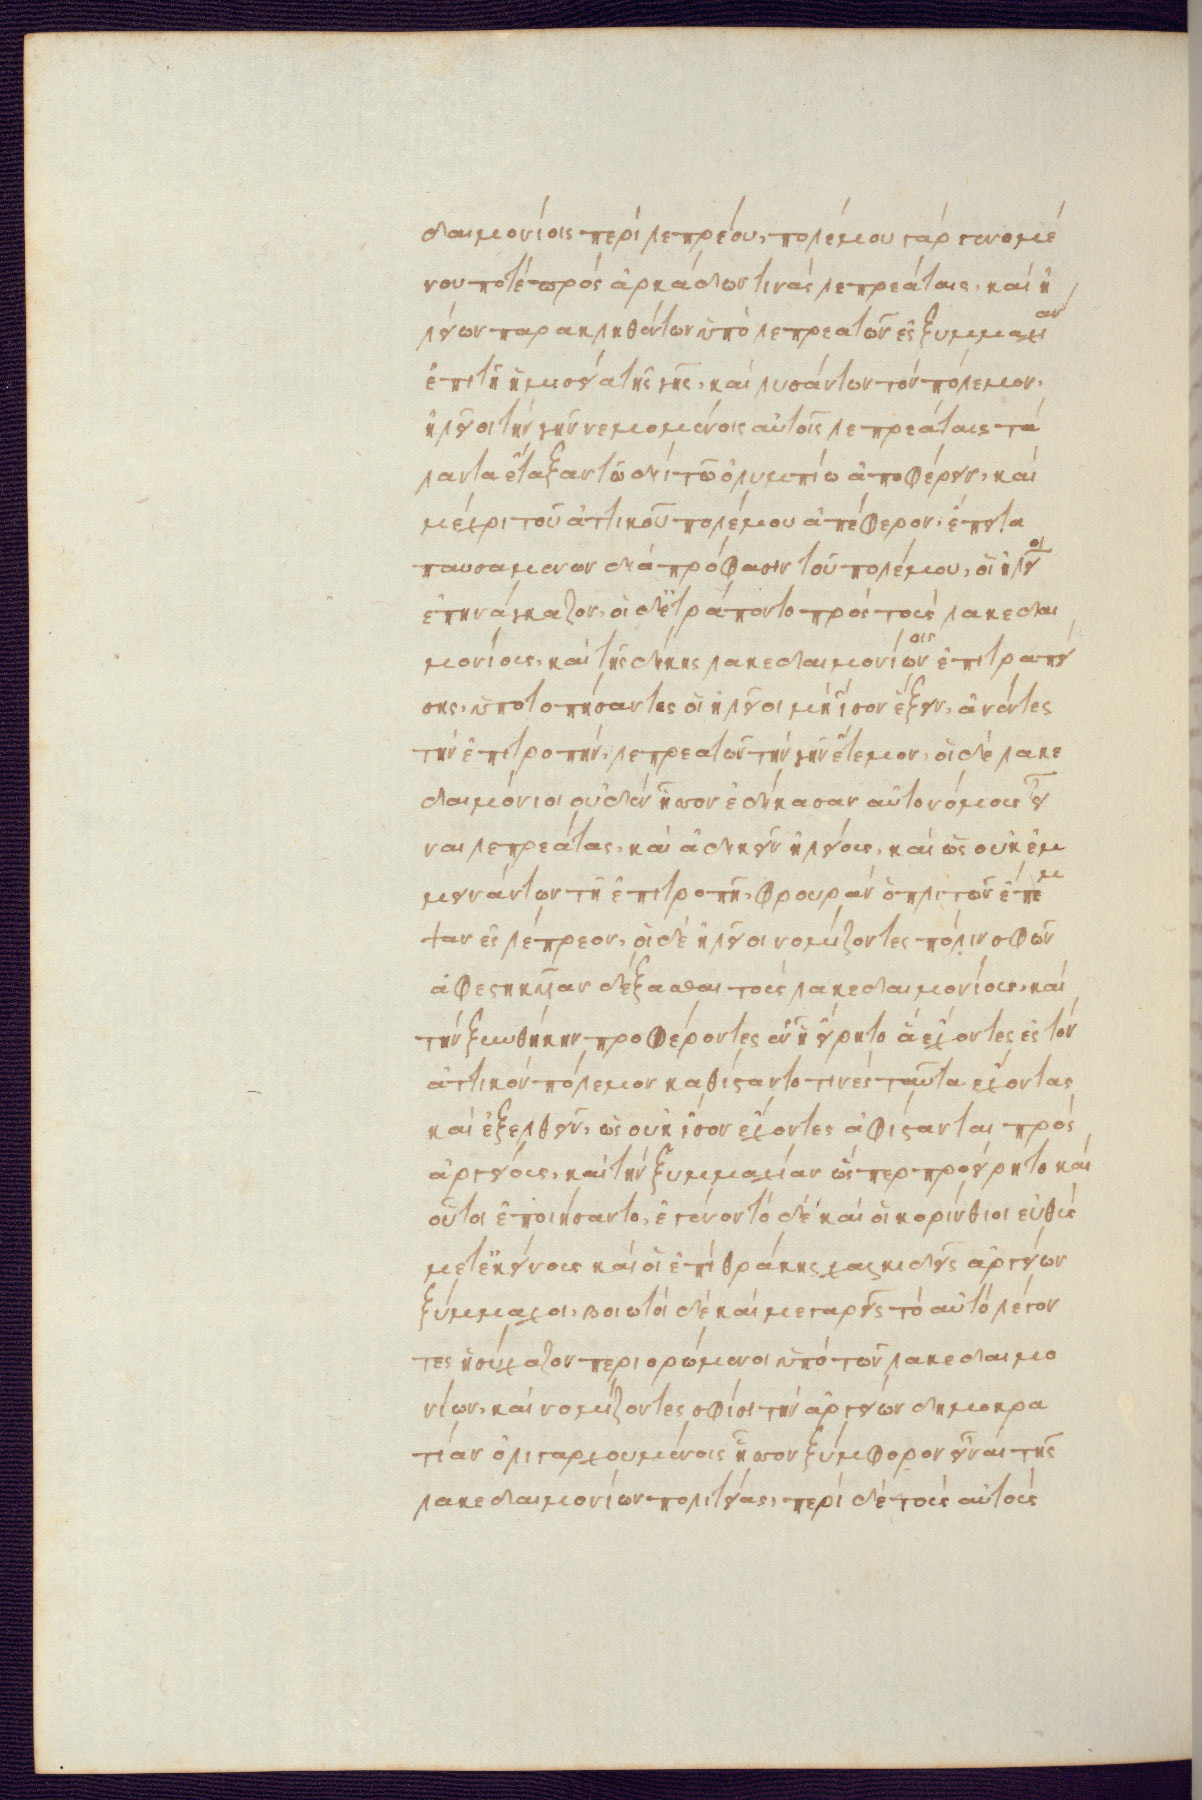 δαιμονίοις περὶ λεπρέου, πολέμου γάρ γενομέ
νου ποτὲ πρὸς ἀρκάδων τινὰς λεπρεάταις, καὶ ἠ
λείων παρακληθέντων ὑπὸ λεπρεατῶν ἐς ξυμμαχίαν
ἐπὶ τῇ ἡμισείᾳ τῆς γῆς, καὶ λυσάντων τὸν πόλεμον,
ἠλεῖοι τὴν γῆν νεμομένοις αὐτοῖς λεπρεάταις τά
λαντα ἔταξαν τῷ διὶ τῷ ὀλυμπίῳ ἀποφέρειν, καὶ
μέχρι τοῦ ἀττικοῦ πολέμου ἀπέφερον, ἔπειτα
παυσαμένων διὰ πρόφασιν τοῦ πολέμου, οἱ ἠλεῖοι
ἐπηνάγκαζον, οἱ δ' ἐτράποντο πρὸς τοὺς λακεδαι
μονίους, καὶ τῆς δίκης λακεδαιμονίοις ἐπιτραπεί
σης, ὑποτοπήσαντες οἱ ἠλεῖοι μὴ ἴσον ἕξειν, ἀνέντες
τὴν ἐπιτροπὴν, λεπρεατῶν τὴν γῆν ἔτεμον, οἱ δὲ λακε
δαιμόνιοι οὐδὲν ἧσσον ἐδίκασαν αὐτονόμους εἶ
ναι λεπρεάτας, καὶ ἀδικεῖν ἠλείους, καὶ ὡς οὐκ ἐμ
μεινάντων τῇ ἐπιτροπῇ, φρουρὰν ὁπλιτῶν ἐπεμ
ψαν ἐς λέπρεον, οἱ δὲ ἠλεῖοι νομίζοντες πόλιν σφῶν
ἀφεστηκυῖαν δέξασθαι τοὺς λακεδαιμονίους, καὶ
τὴν ξυνθήκην προφέροντες ἐν ᾗ εἴρητο ἃ ἔχοντες ἐς τὸν
ἀττικὸν πόλεμον καθίσταντο τινὲς ταῦτα ἔχοντας
καὶ ἐξελθεῖν, ὡς οὐκ ἴσον ἔχοντες ἀφίστανται πρὸς
ἀργείους, καὶ τὴν ξυμμαχίαν ὥσπερ προείρητο καὶ
οὗτοι ἐποιήσαντο, ἐγένοντο δὲ καὶ οἱ κορίνθιοι εὐθὺς
μετ' ἐκείνους καὶ οἱ ἐπὶ θράκης χαλκιδεῖς ἀργείων
ξύμμαχοι, βοιωτοὶ δὲ καὶ μεγαρεῖς τὸ αὐτὸ λέγον
τες ἡσύχαζον περιορώμενοι ὑπὸ τῶν λακεδαιμο
νίων, καὶ νομίζοντες σφίσι τὴν ἀργείων δημοκρα
τίαν ὀλιγαρχουμένοις ἧσσον ξύμφορον εἶναι τῆς
λακεδαιμονίων πολιτείας, περὶ δὲ τοὺς αὐτοὺς